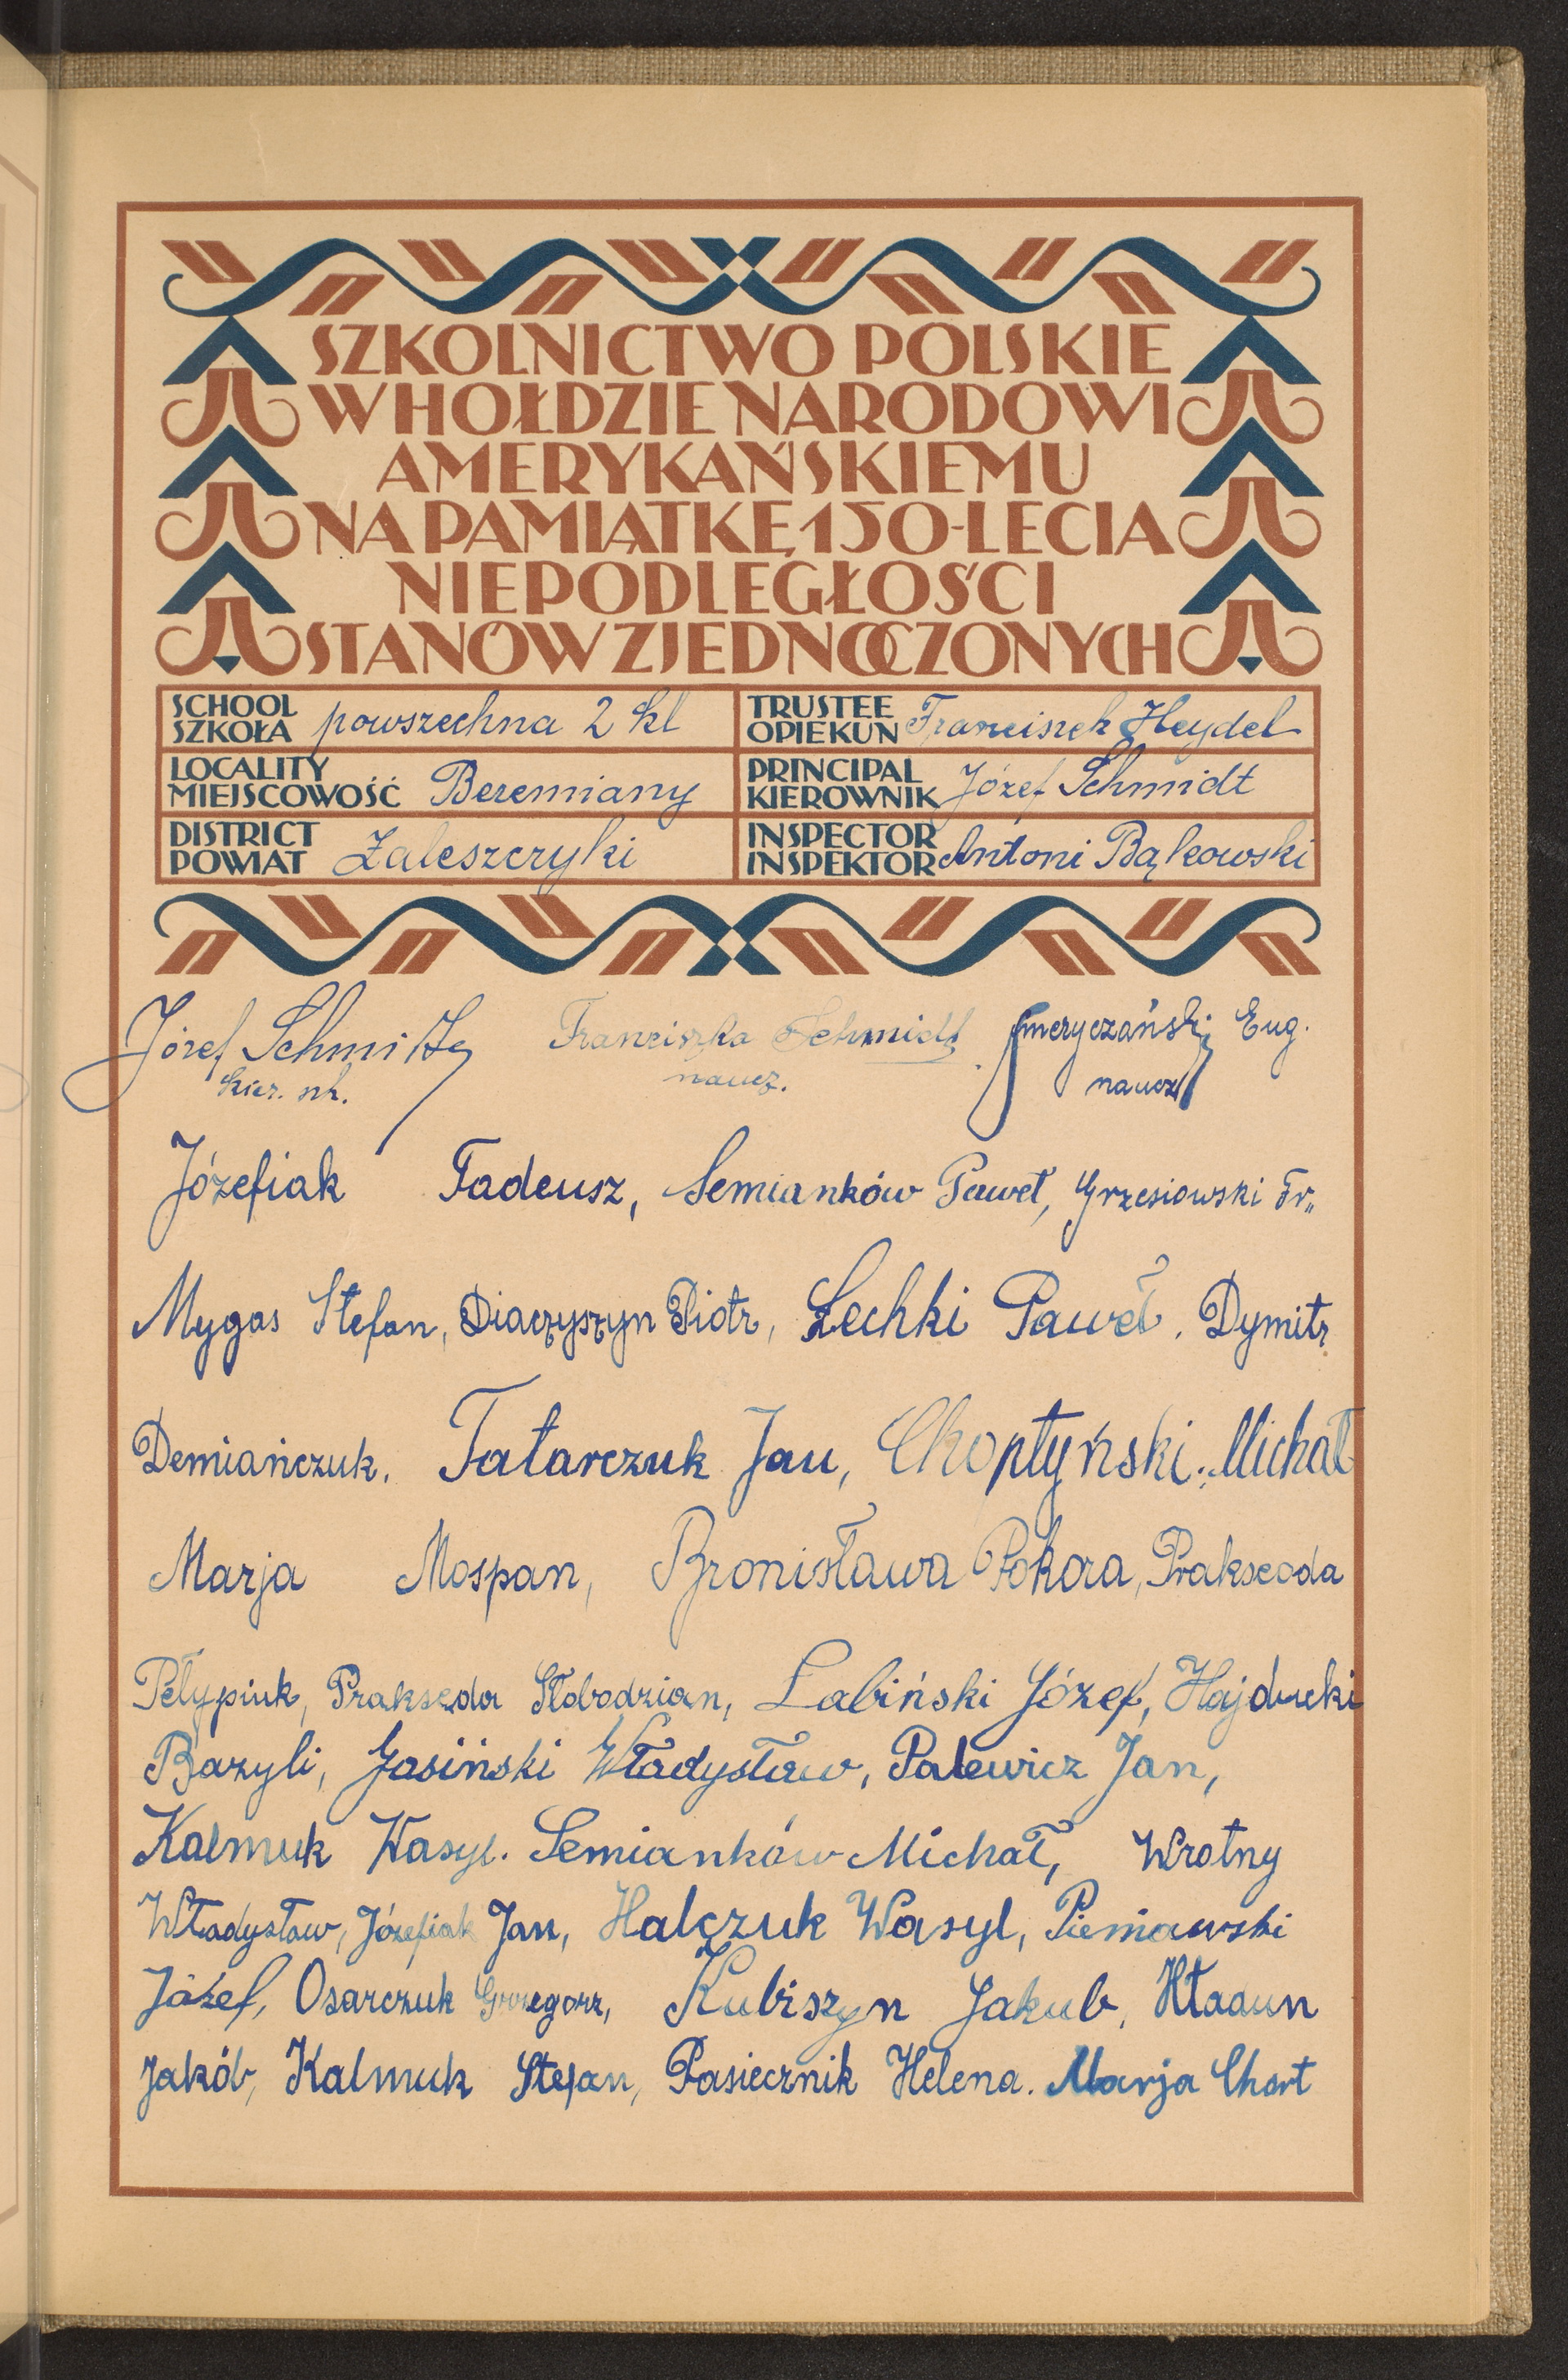 SZKOLNICTWO POLSKIE
W HOŁDZIE NARODOWI
AMERYKAŃSKIEMU
NA PAMIĄTKĘ 150-LECIA
NIEPODLEGŁOŚCI
STANÓW ZJEDNOCZONYCH
SCHOOL
SZKOŁA powszechna 2 kl
TRUSTEE
OPIEKUN Franciszek Heydel
LOCALITY
MIEJSCOWOŚĆ Beremiany
PRINCIPAL
KIEROWNIK Józef Schmidt
DISTRICT
POWIAT Zaleszczyki
INSPECTOR
INSPEKTOR Antoni Bąkowski
Józef Schmidt Franciszka Schmidt Eug.
kier. szk. naucz. naucz.
Józefiak Tadeusz, Semianków Paweł, Grzesiowski Fr.,
Mygas Stefan, Diaczyszyn Piotr, Łechki Paweł, Dymitr
Demiańczuk. Tatarczuk Jan, Choptyński Michał
Marja Mospan, Bronisława Pokora, Prakseda
Pełypiuk, Prakseda Słobodzian, Labiński Józef, Hajducki
Bazyli, Gasiński Władysław, Palewicz Jan,
Kalmuk Wasyl. Semianków Michał, Wrotny
Władysław, Józefiak Jan, Halczuk Wasyl, Pieniawski
Józef, Osarczuk Grzegorz, Kubiszyn Jakub,
Jakób, Kalmuk Stefan, Pasiecznik Helena. Marja Chort